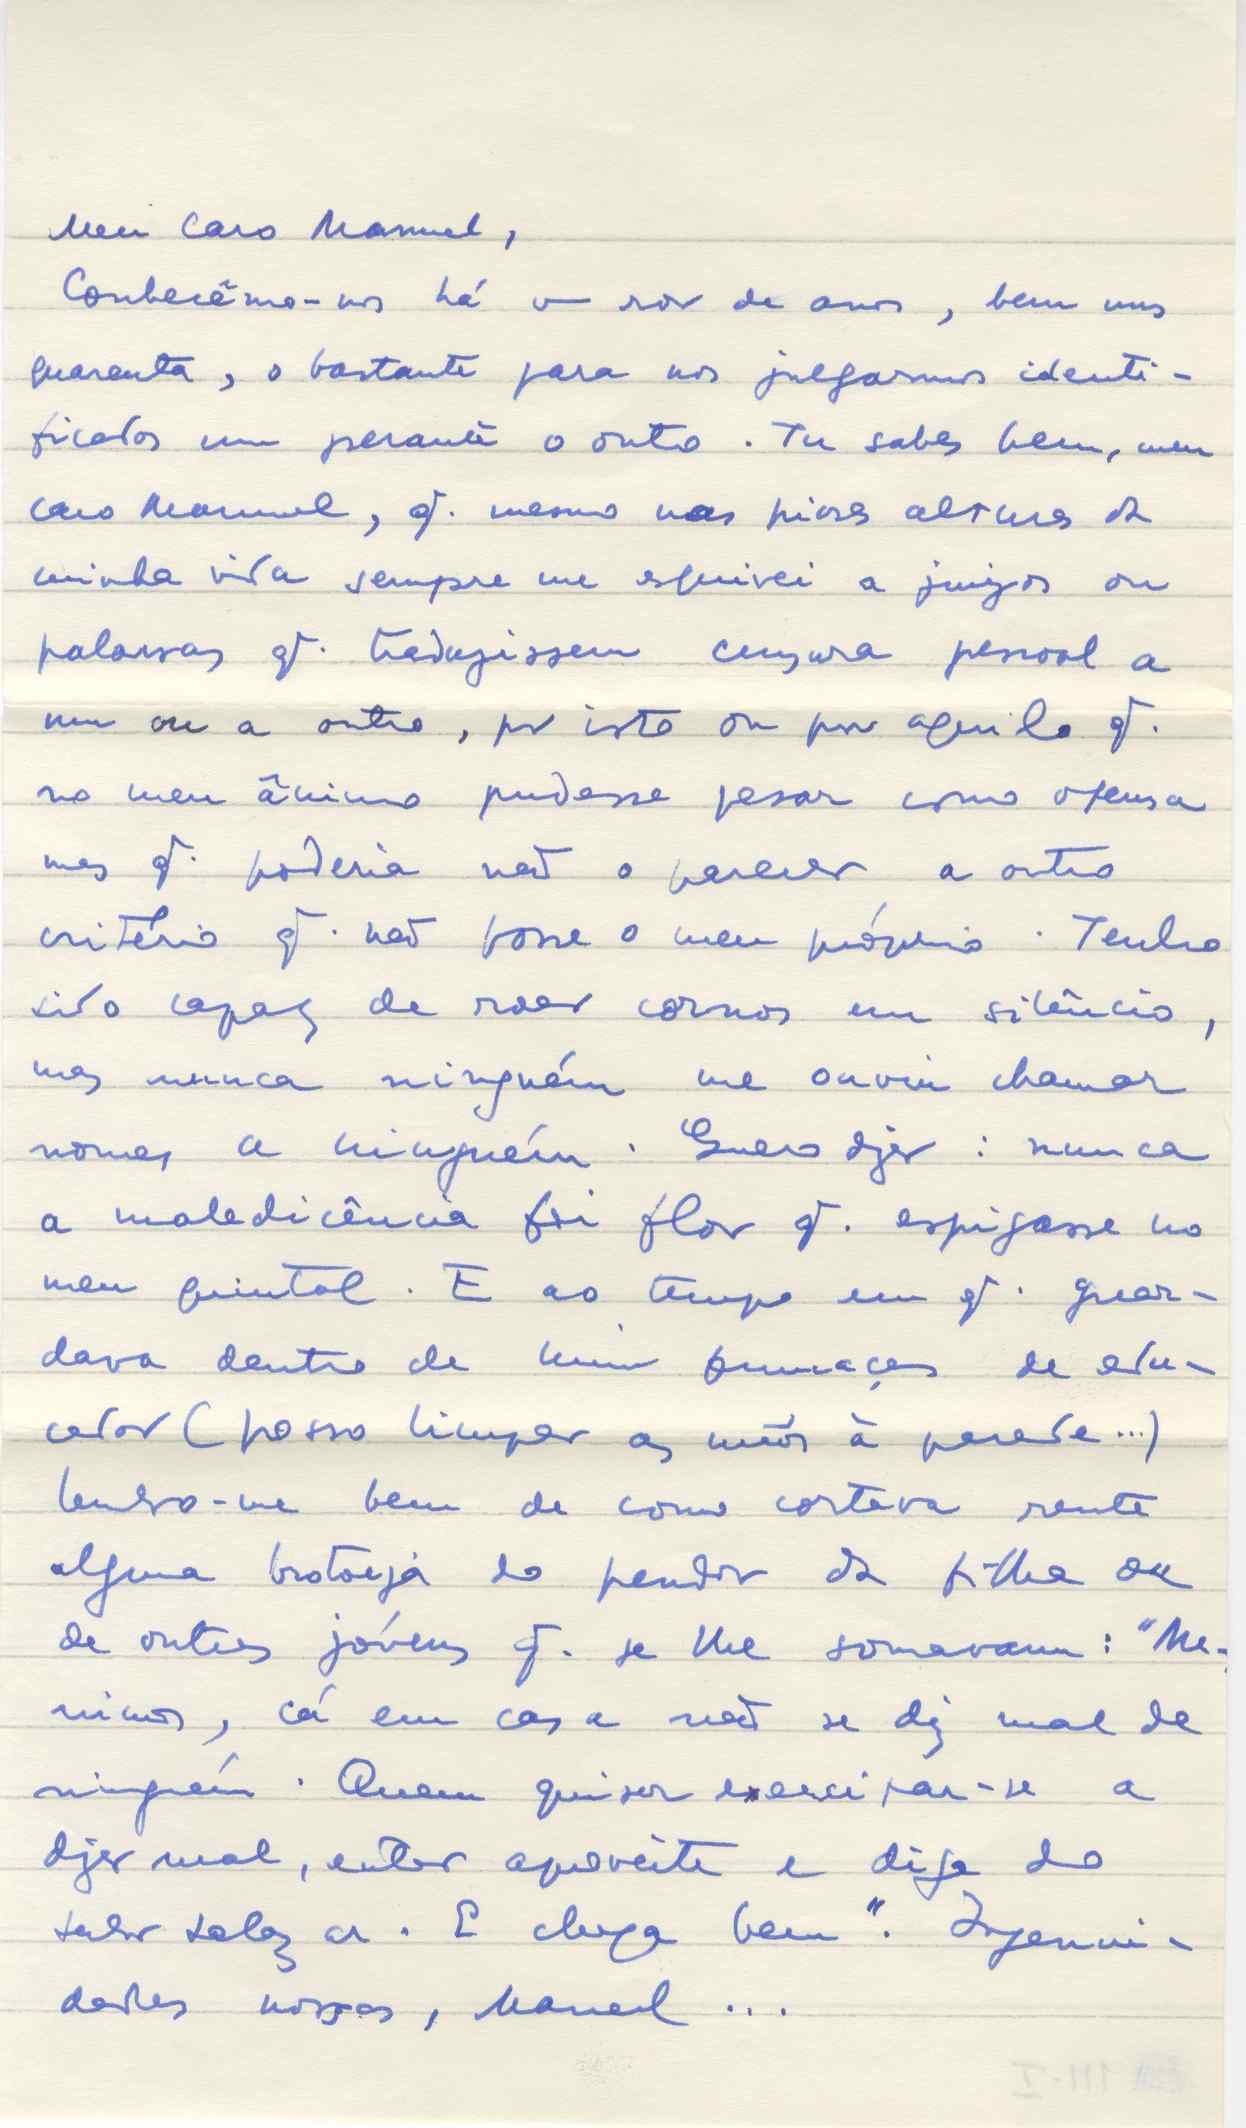 Meu Caro Manuel,
Conhecêmo-nos há um ror de anos, bem uns
quarenta, o bastante para nos julgarmos identi-
ficados um perante o outro. Tu sabes bem, meu
caro Manuel, q. mesmo nas piores alturas da
minha vida sempre me esquivei a juizos ou
palavras q. traduzissem censura pessoal a
um ou a outro, por isto ou por aquilo q.
no meu ânimo pudesse pesar como ofensa
mas q. poderia não o parecer a outro
critério q. não fosse o meu próprio. Tenho
sido capaz de roer cornos em silêncio,
mas nunca ninguém me ouviu chamar
nomes a ninguém. Quero dizer: nunca
a maledicência foi flor q. espigasse no
meu quintal. E ao tempo em q. guar-
dava dentro de mim fumaças de edu-
cador (posso limpar as mãos à parede...)
lembro-me bem de como cortava rente
alguma brotoeja do pendor da filha ou
de outros jóvens q. se lhe somavam: "Me-
ninos, cá em casa não se diz mal de
ninguém. Quem quiser exercitar-se a
dizer mal, então aproveite e diga do
senhor Salazar. E chega bem". Ingenui-
dades nossas, Manuel ...
III-I